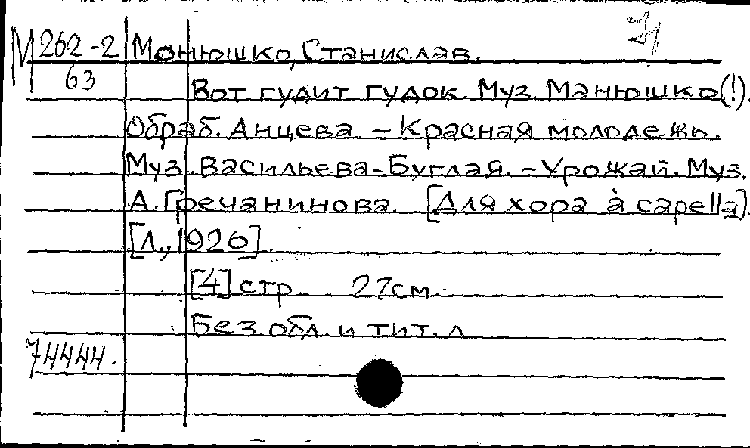 М 262-2
63
Монюшко, Станислав.
Вот гудит гудок. Муз. Манюшко(!).
Обраб. Анцева. – Красная молодежь.
Муз. Васильева-Буглая. – Урожай. Муз.
А. Гречанинова. [Для хора à capella].
[Л., 1926].
[4] стр. 27см.
Без обл. и тит. л.
74444.